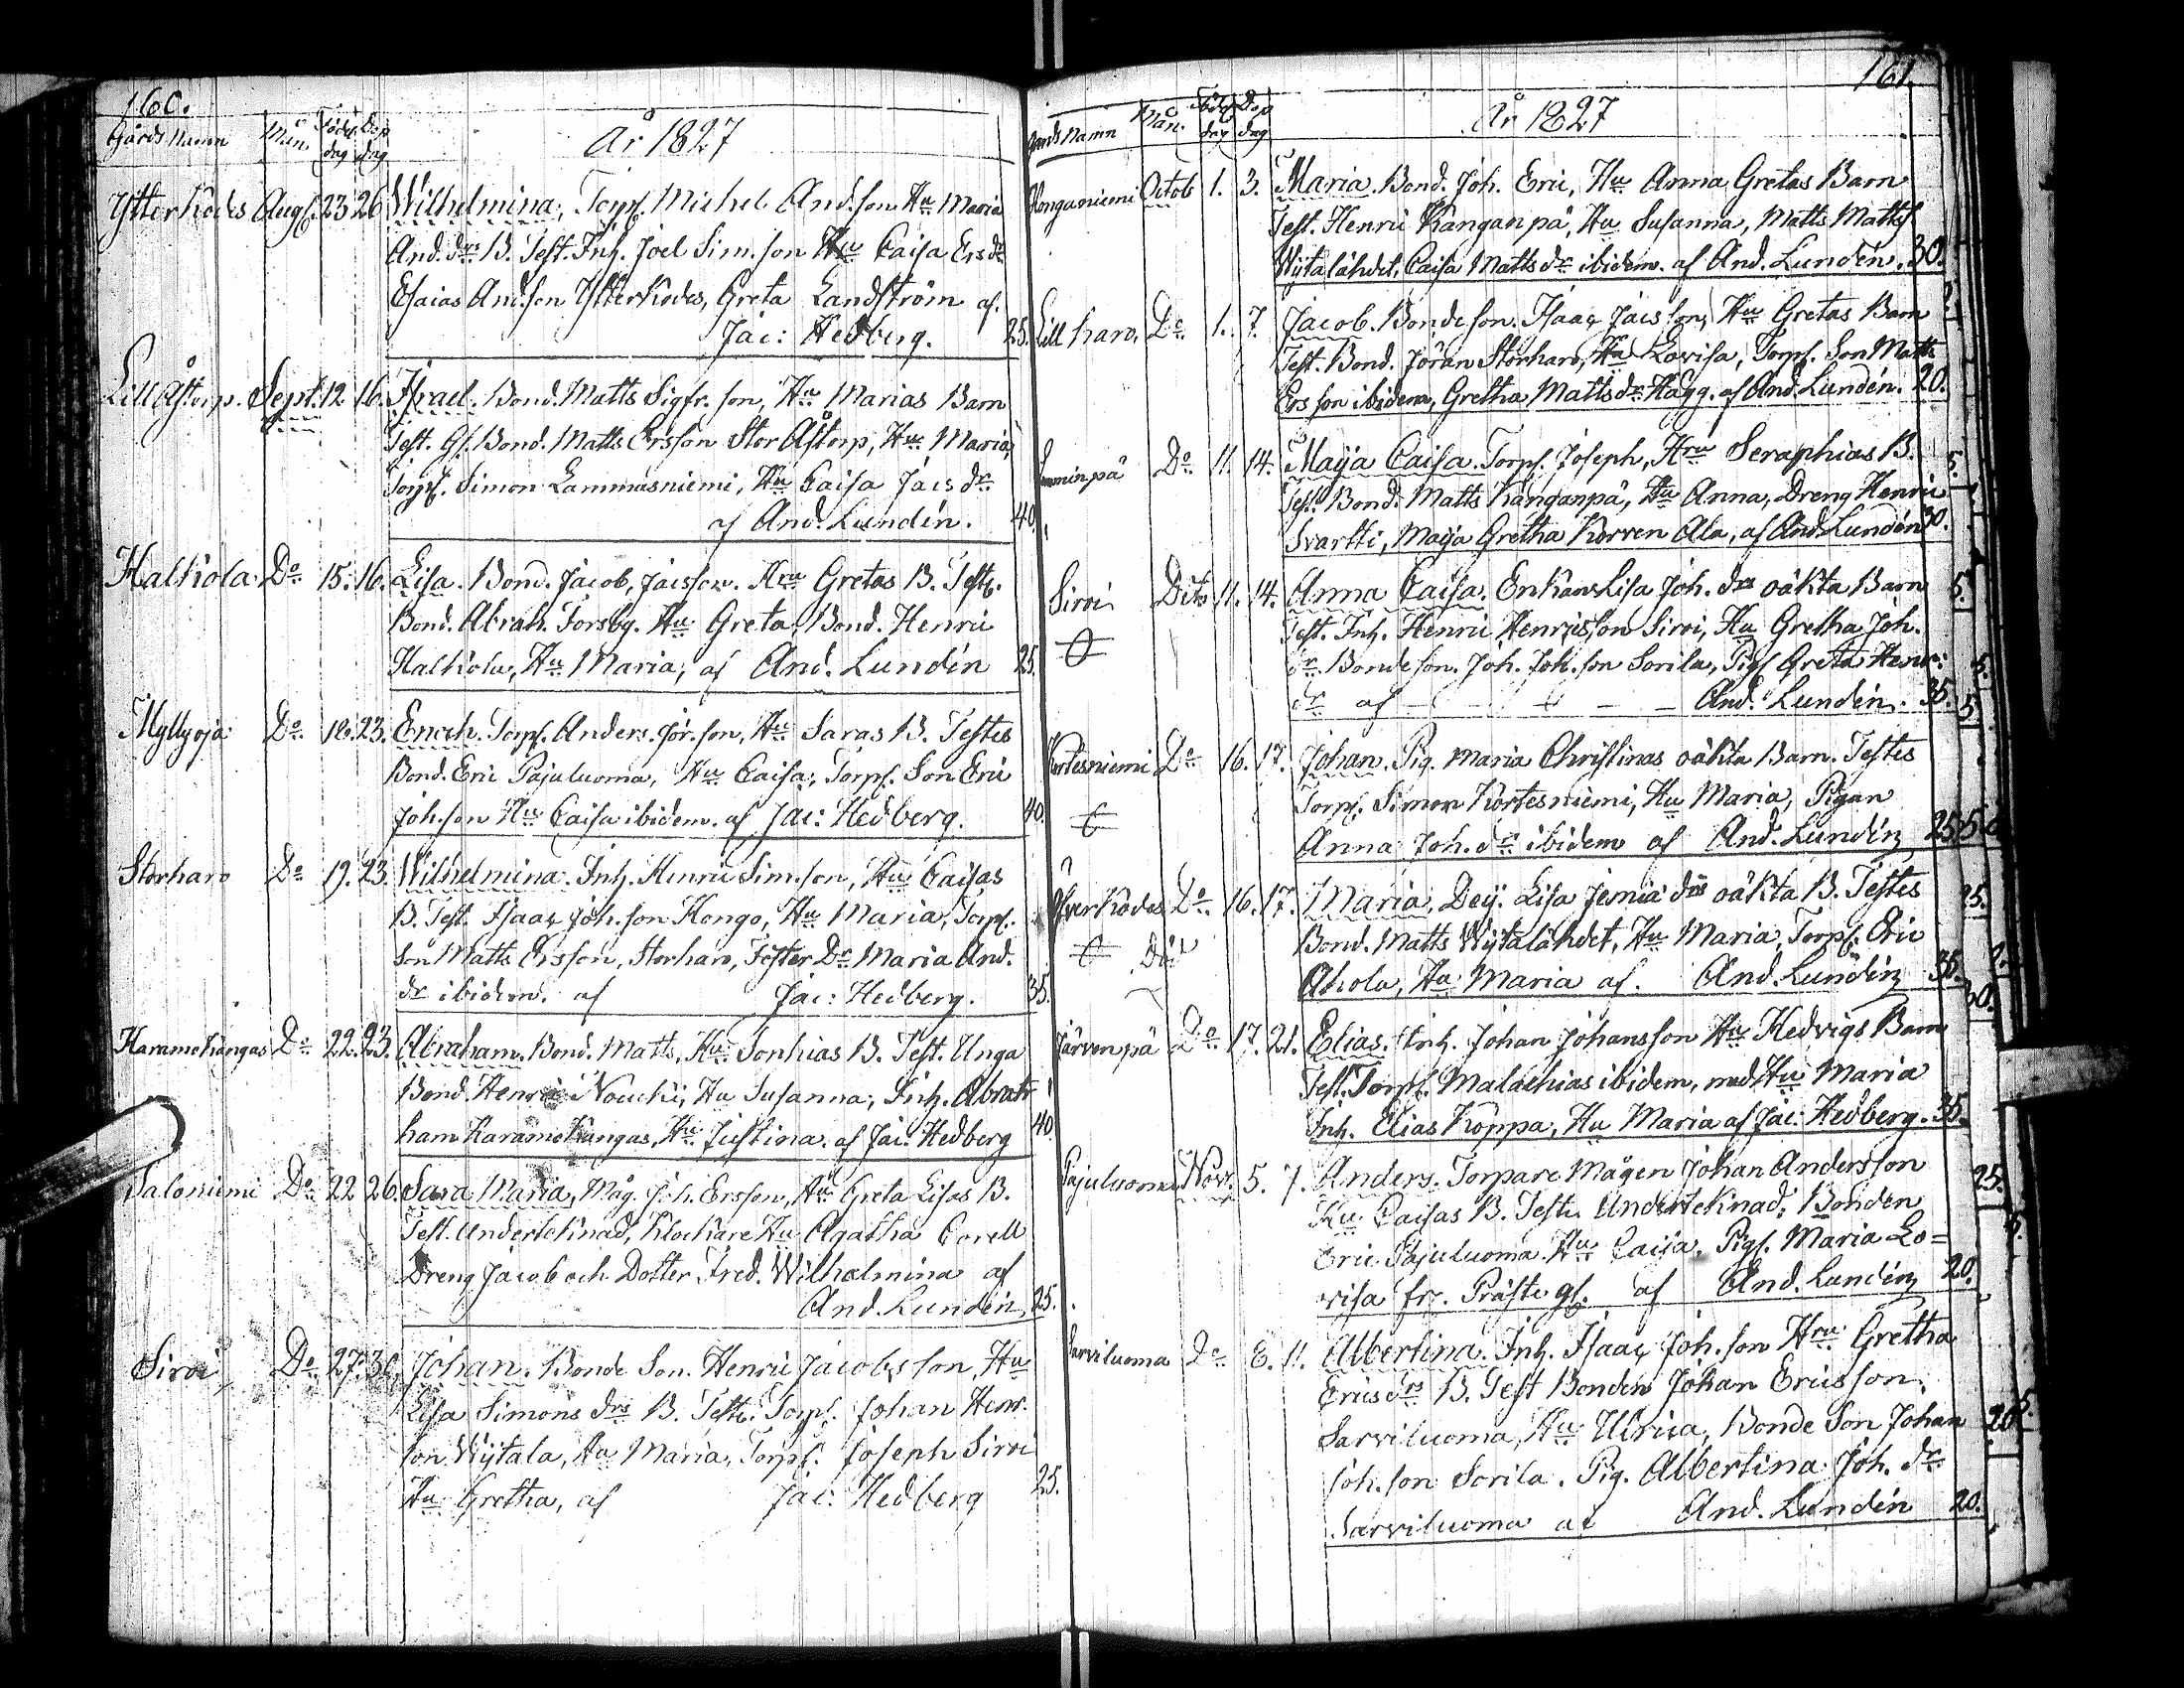 160.
Gårds Namn Mån. Föds dag Döp dag År 1827
Ytterkodes Augs. 23 26 Wilhelmina, Torp. Michel And.son Hu Maria
And. drs B. Test. Inh. Joel Sim.son Hu Caisa Ers dr
Esaias And.son Ytterkodes, Greta Landström af.
Jac: Hedberg. 25.
Lill Åstorp. Sept. 12 16. Israel. Bond. Matts Sigfr. son, Hu Marias Barn
Test. Gl. Bond. Matts Ersson Stor Åstorp, Hu Maria,
Torp. Simon Lammasniemi, Hu Caisa Jacs dr
af And. Lundén. 40.
Halkola Do 15. 16. Lisa. Bond. Jacob, Jacsson. Hru Gretas B. Test.
Bond. Abrah. Forsby. Hu Greta, Bond. Henric
Halkola, Hu Maria, af And. Lundén 25.
Myllyoja Do 18. 23. Enoch. Torp. Anders. Jör.son, Hu Saras B. Testes
Bond. Eric Pajuluoma, Hu Caisa, Torp. Son Eric
Joh.son Hu Caisa ibidem. af Jac: Hedberg. 40.
Storharo Do 19. 23. Wilhelmina. Inh. Henric Sim.son, Hu Caisas
B. Test. Isaac Joh.son Kongo, Hu Maria, Torp.
Son Matts Ersson, Storharo, Foster Dr Maria And.
dr ibidem. af Jac: Hedberg. 35.
Karamokangas Do 22. 23. Abraham. Bond. Matts, Hu Sophias B. Test. Unga
Bond. Henric Noucki, Hu Susanna, Inh. Abra
ham Karamokangas, Hu Justina. af Jac: Hedberg 40.
Saloniemi Do 22 26. Sara Maria, Måg. Joh. Ersson, Hu Greta Lisas B.
Test. Undertecknad, Klockare Hu Agatha Corell
Dreng Jacob och Dotter Fred. Wilhelmina af
And. Lundén, 25.
Siroi, Do 27. 30. Johan. Bonde Son. Henric Jacobsson, Hu
Lisa Simons drs B. Test. Torp. Johan Henr.
son Wijtala, Hu Maria, Torp. Joseph Siroi
Hu Gretha, af Jac: Hedberg 25.
161.
Gards Namn Mån. Föds dag Döp dag År 1827
Octob 1. 3. Maria. Bond. Joh. Eric, Hu Anna Gretas Barn
Test. Henric Kanganpä, Hu Susanna, Matts Matts
Wijtalähdet, Caisa Matts dr ibidem. af And. Lundén. 30.
Lill haro. Do 1. 7. Jacob. Bonde son. Isaac Jacsson, Hu Gretas Barn
Test. Bond. Jöran Storharo, Hu Lovisa, Torp. Son Matts
Ersson ibidem, Gretha Matts dr Hägg. af And. Lundén. 20.
Do 11. 14. Maija Caisa. Torp. Joseph, Hru Seraphias B.
Test. Bond. Matts Kanganpä, Hu Anna, Dreng Henric
Svartti, Maija Gretha Korven Ala, af And. Lundén 30.
Siroi Dito 11. 14. Anna Caisa. Enkans Lisa Joh. drs oäkta Barn
Test. Inh. Henric Henricsson Siroi, Hu Gretha Joh.
dr Bondeson. Joh. Joh.son Sorila, Pig. Greta Henr:
dr af And. Lundén. 35.
Kortesniemi Do 16. 17. Johan. Pig. Maria Christinas oäkta Barn. Testes
Torp. Simon Kortesniemi, Hu Maria, Pigan
Anna Joh. dr ibidem af And. Lundén 25.
Öfverkodes Do 16. 17. Maria, Dej. Lisa Jemia drs oäkta B. Testes
Död Bond. Matts Wijtalähdet, Hu Maria, Torp. Eric
Ahola, Hu Maria af. And. Lundén 35.
Järvenpä Do 17. 21. Elias. Inh. Johan Johansson Hu Hedvigs Barn
Test. Torp. Malachias ibidem, med Hu Maria
Inh. Elias Koppa, Hu Maria af Jac: Hedberg. 35.
Pajuluoma Nov. 5. 7. Anders. Torpare Mågen Johan Andersson
Hu Caisas B. Test. Undertecknad, Bonden
Eric Pajuluoma Hu Caija. Pig. Maria Lo=
visa fr. Präste gl. af And. Lundén 20.
Sarviluoma Do 8. 11. Albertina. Inh. Isaac Joh.son Hru Gretha
Erics drs B. Test Bonden Johan Ericsson,
Sarviluoma, Hu Ulrica, Bonde Son Johan
Joh.son Sorila. Pig. Albertina Joh. dr
Sarviluoma af And. Lundén 20.